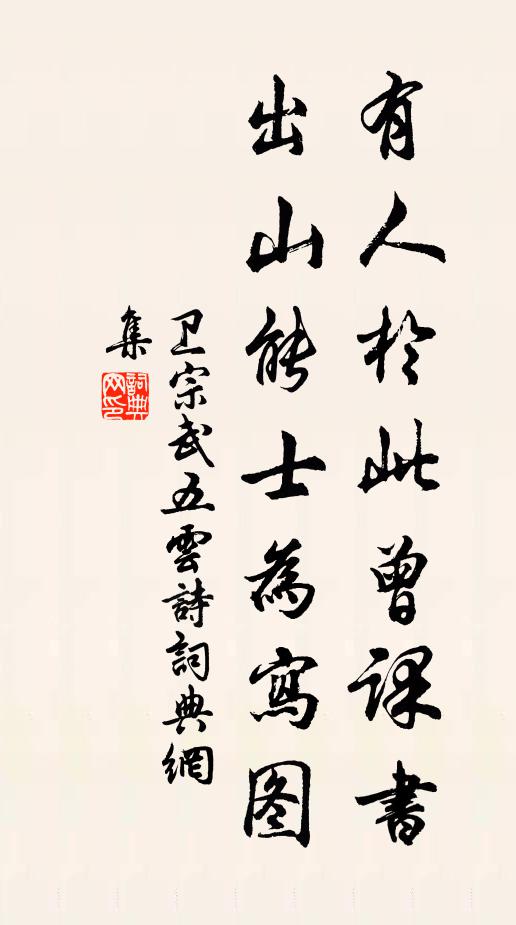 有人於此曾課書
出山能士為寫图
卫宗武五雲詩詞典網
集
詞典网印